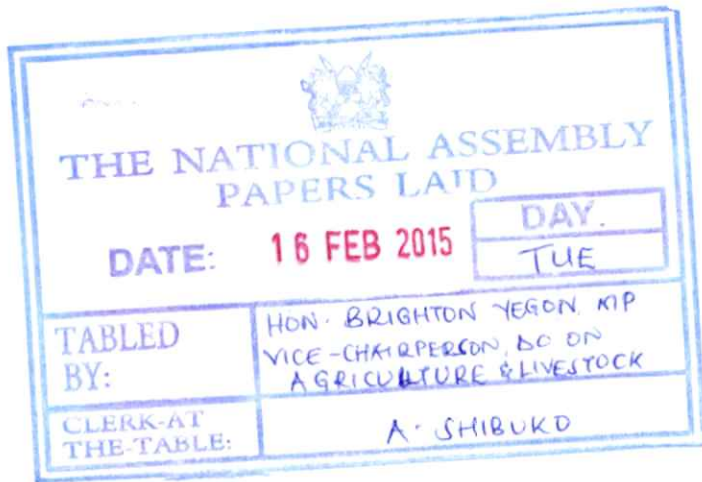 THE NATIONAL ASSEMBLY
PAPERS LAID
DATE: 16 FEB 2015
DAY.
TUE
TABLED BY:
HON. BRIGHTON YEGON, MP
VICE-CHAIRPERSON, DC ON
AGRICULTURE & LIVESTOCK
CLERK-AT THE-TABLE:
A. SHIBUKO